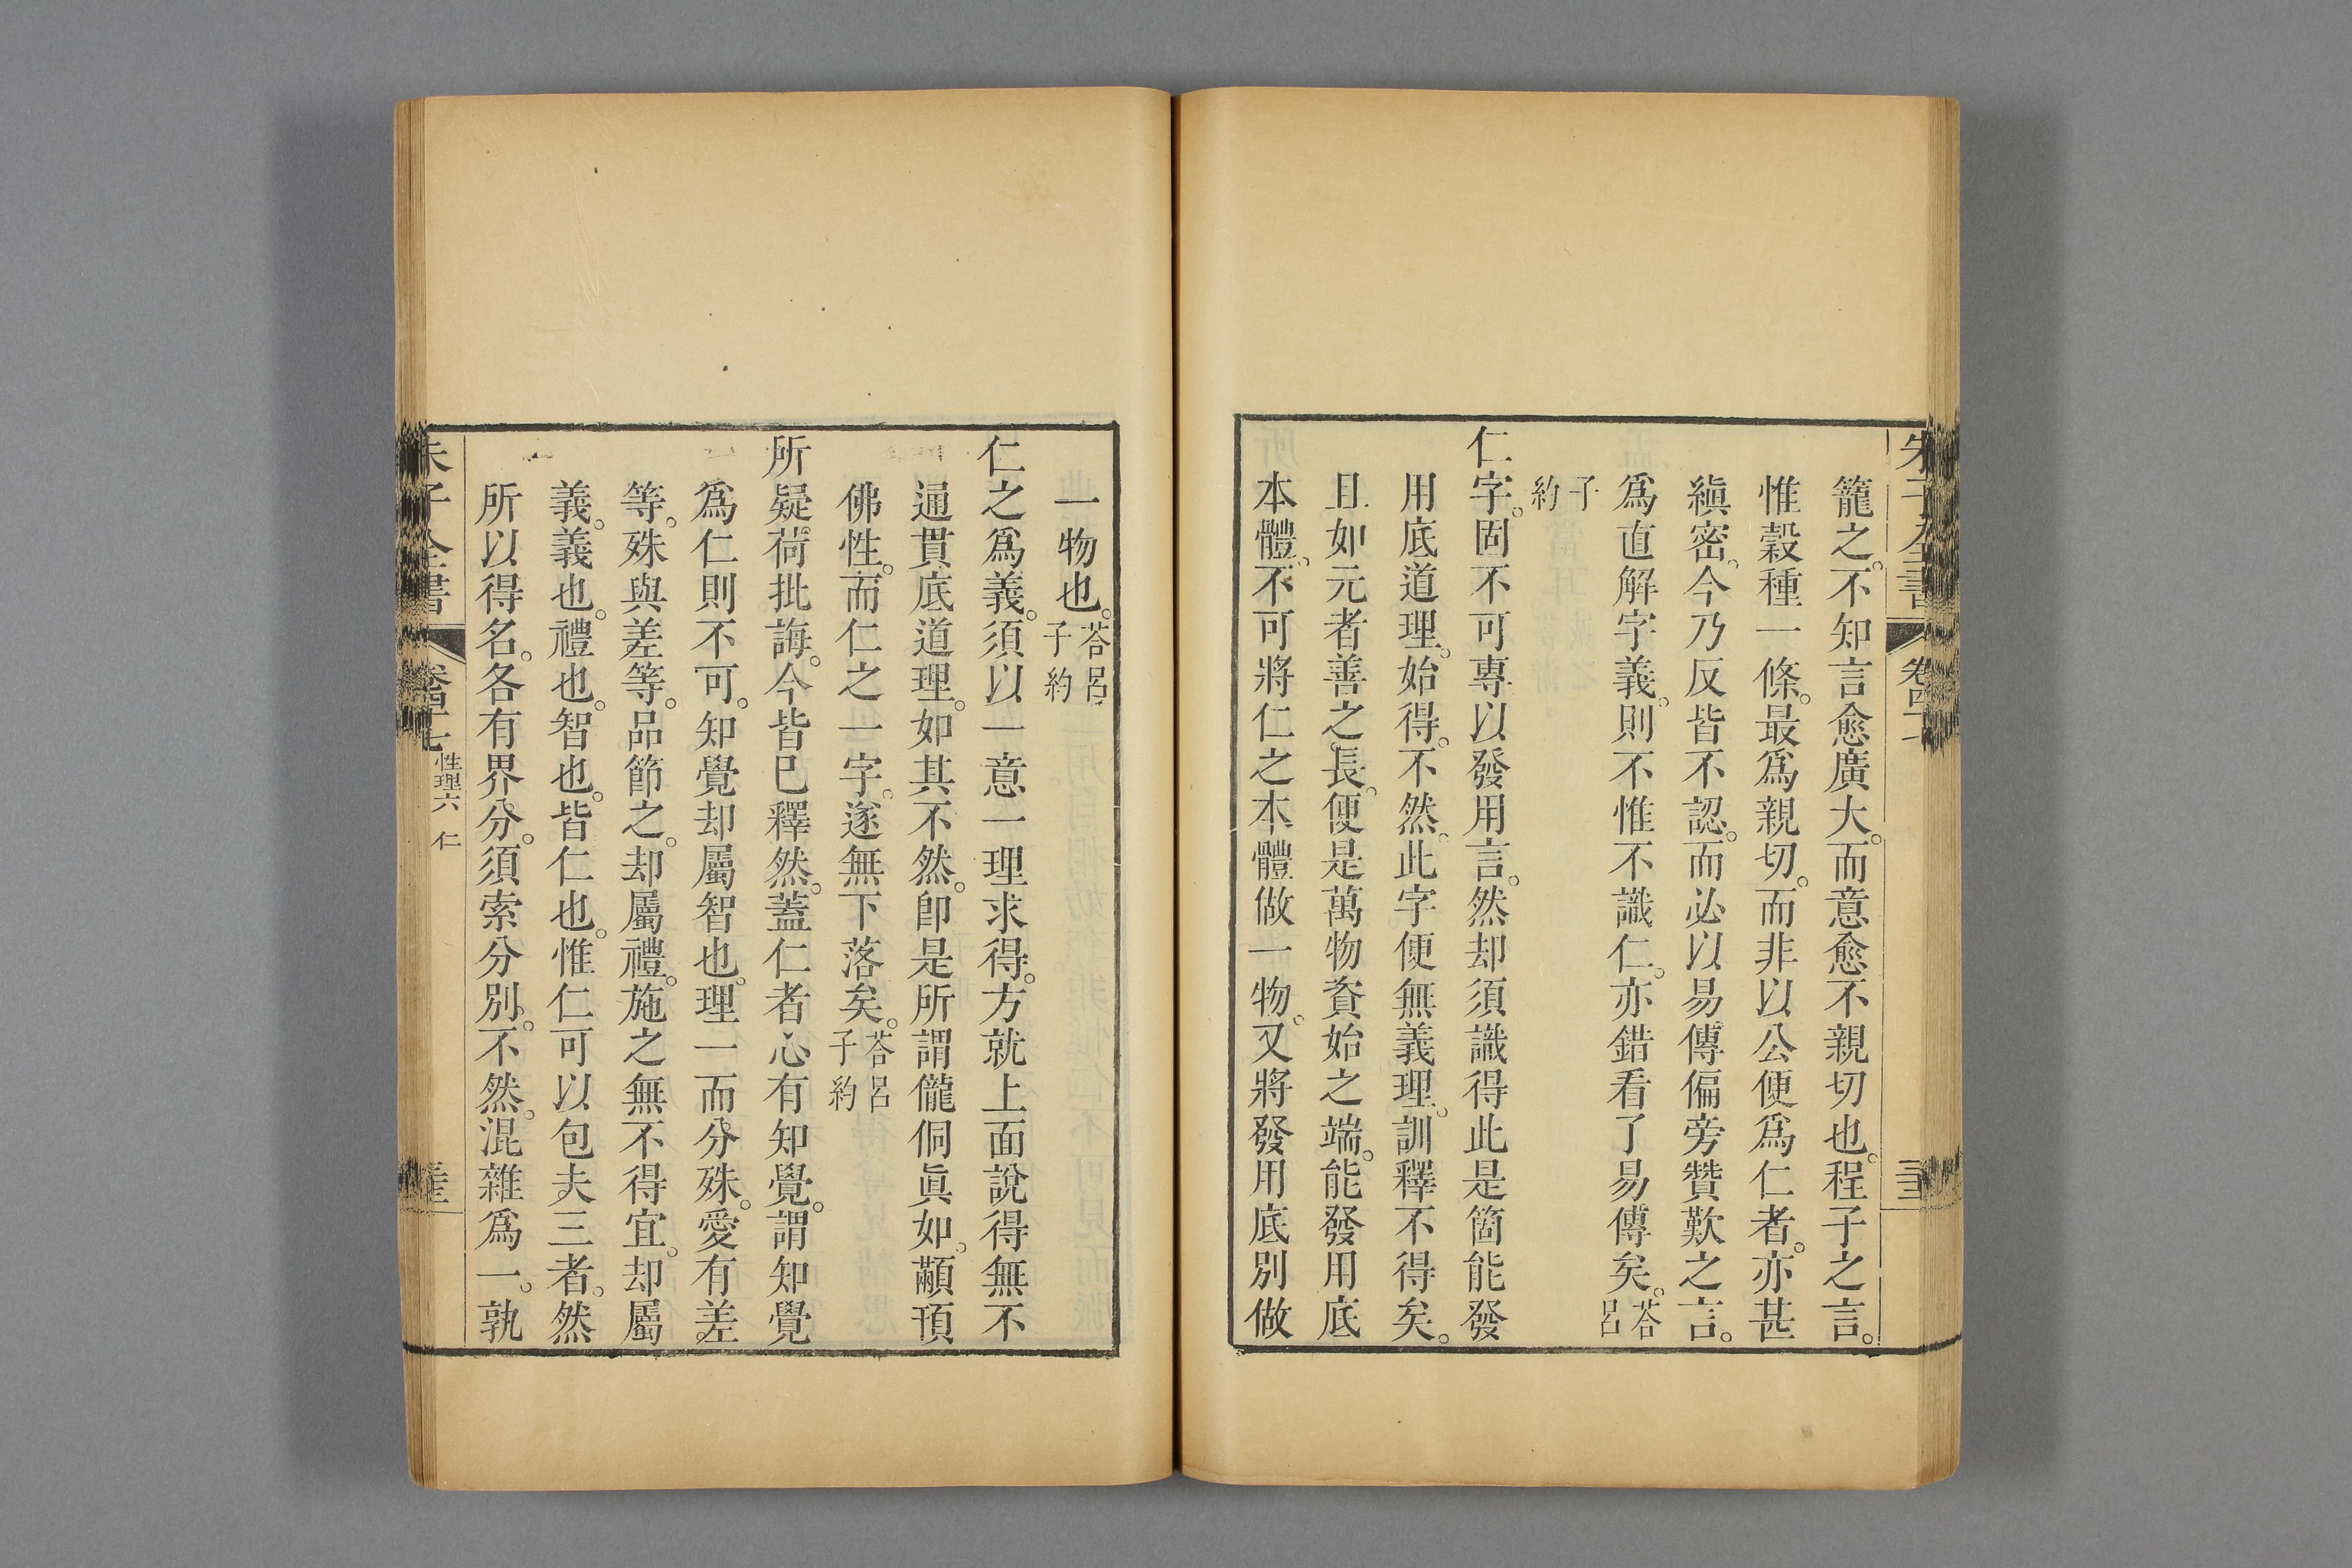 籠之。不知言愈廣大。而意愈不親切也。程子之言。
惟穀種一條。最爲親切。而非以公便爲仁者。亦甚
縝密。今乃反皆不認。而必以易傳偏旁贊歎之言。
爲直解字義。則不惟不識仁。亦錯看了易傳矣。答呂
子約
仁字。固不可專以發用言。然却須識得此是箇能發
用底道理。始得。不然。此字便無義理。訓釋不得矣。
且如元者善之長。便是萬物資始之端。能發用底
本體。不可將仁之本體做一物。又將發用底別做
一物也。答呂子約
仁之爲義。須以一意一理求得。方就上面說得無不
通貫底道理。如其不然。卽是所謂儱侗眞如。顢頇
佛性。而仁之一字。遂無下落矣。答呂子約
所疑荷批誨。今皆已釋然。蓋仁者心有知覺。謂知覺
爲仁則不可。知覺却屬智也。理一而分殊。愛有差
等。殊與差等。品節之。却屬禮。施之無不得宜。却屬
義。義也。禮也。智也。皆仁也。惟仁可以包夫三者。然
所以得名。各有界分。須索分別。不然。混雜爲一。孰
朱子全書
卷四十七
性理六 仁